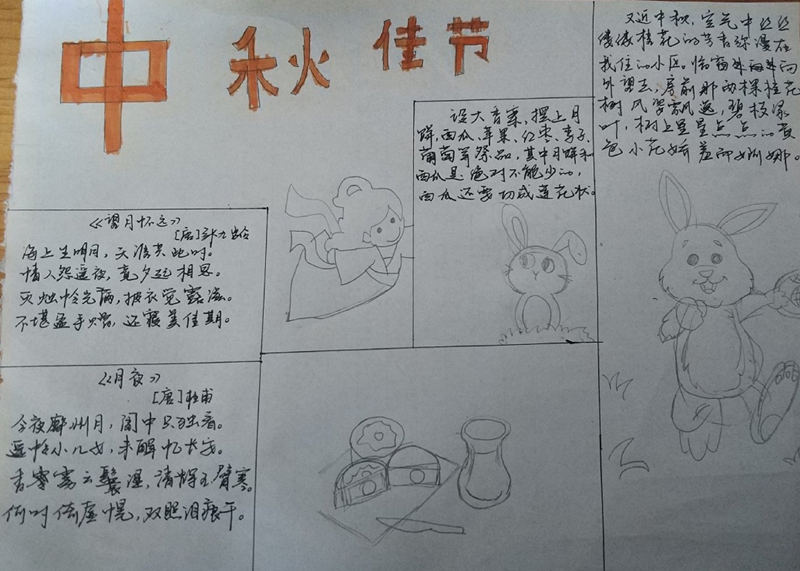 中秋佳节
《望月怀远》
[唐]张九龄
海上生明月，天涯共此时。
情人怨遥夜，竟夕起相思。
灭烛怜光满，披衣觉露滋。
不堪盈手赠，还寝美佳期。
《月夜》
[唐]杜甫
今夜鄜州月，闺中只独看。
遥怜小儿女，未解忆长安。
香雾云鬟湿，清辉玉臂寒。
何时倚虚幌，双照泪痕干。
设大香案，摆上月
饼、西瓜、苹果、红枣、李子、
葡萄等祭品，其中月饼和
西瓜是绝对不能少的，
西瓜还要切成莲花状。
又近中秋，空气中丝丝
缕缕桂花的芳香弥漫在
我住的小区，临窗
外望去，房前那两棵桂花
树风姿飘逸，碧枝绿
叶，树上星星点点的黄
色小花娇羞而婀娜。